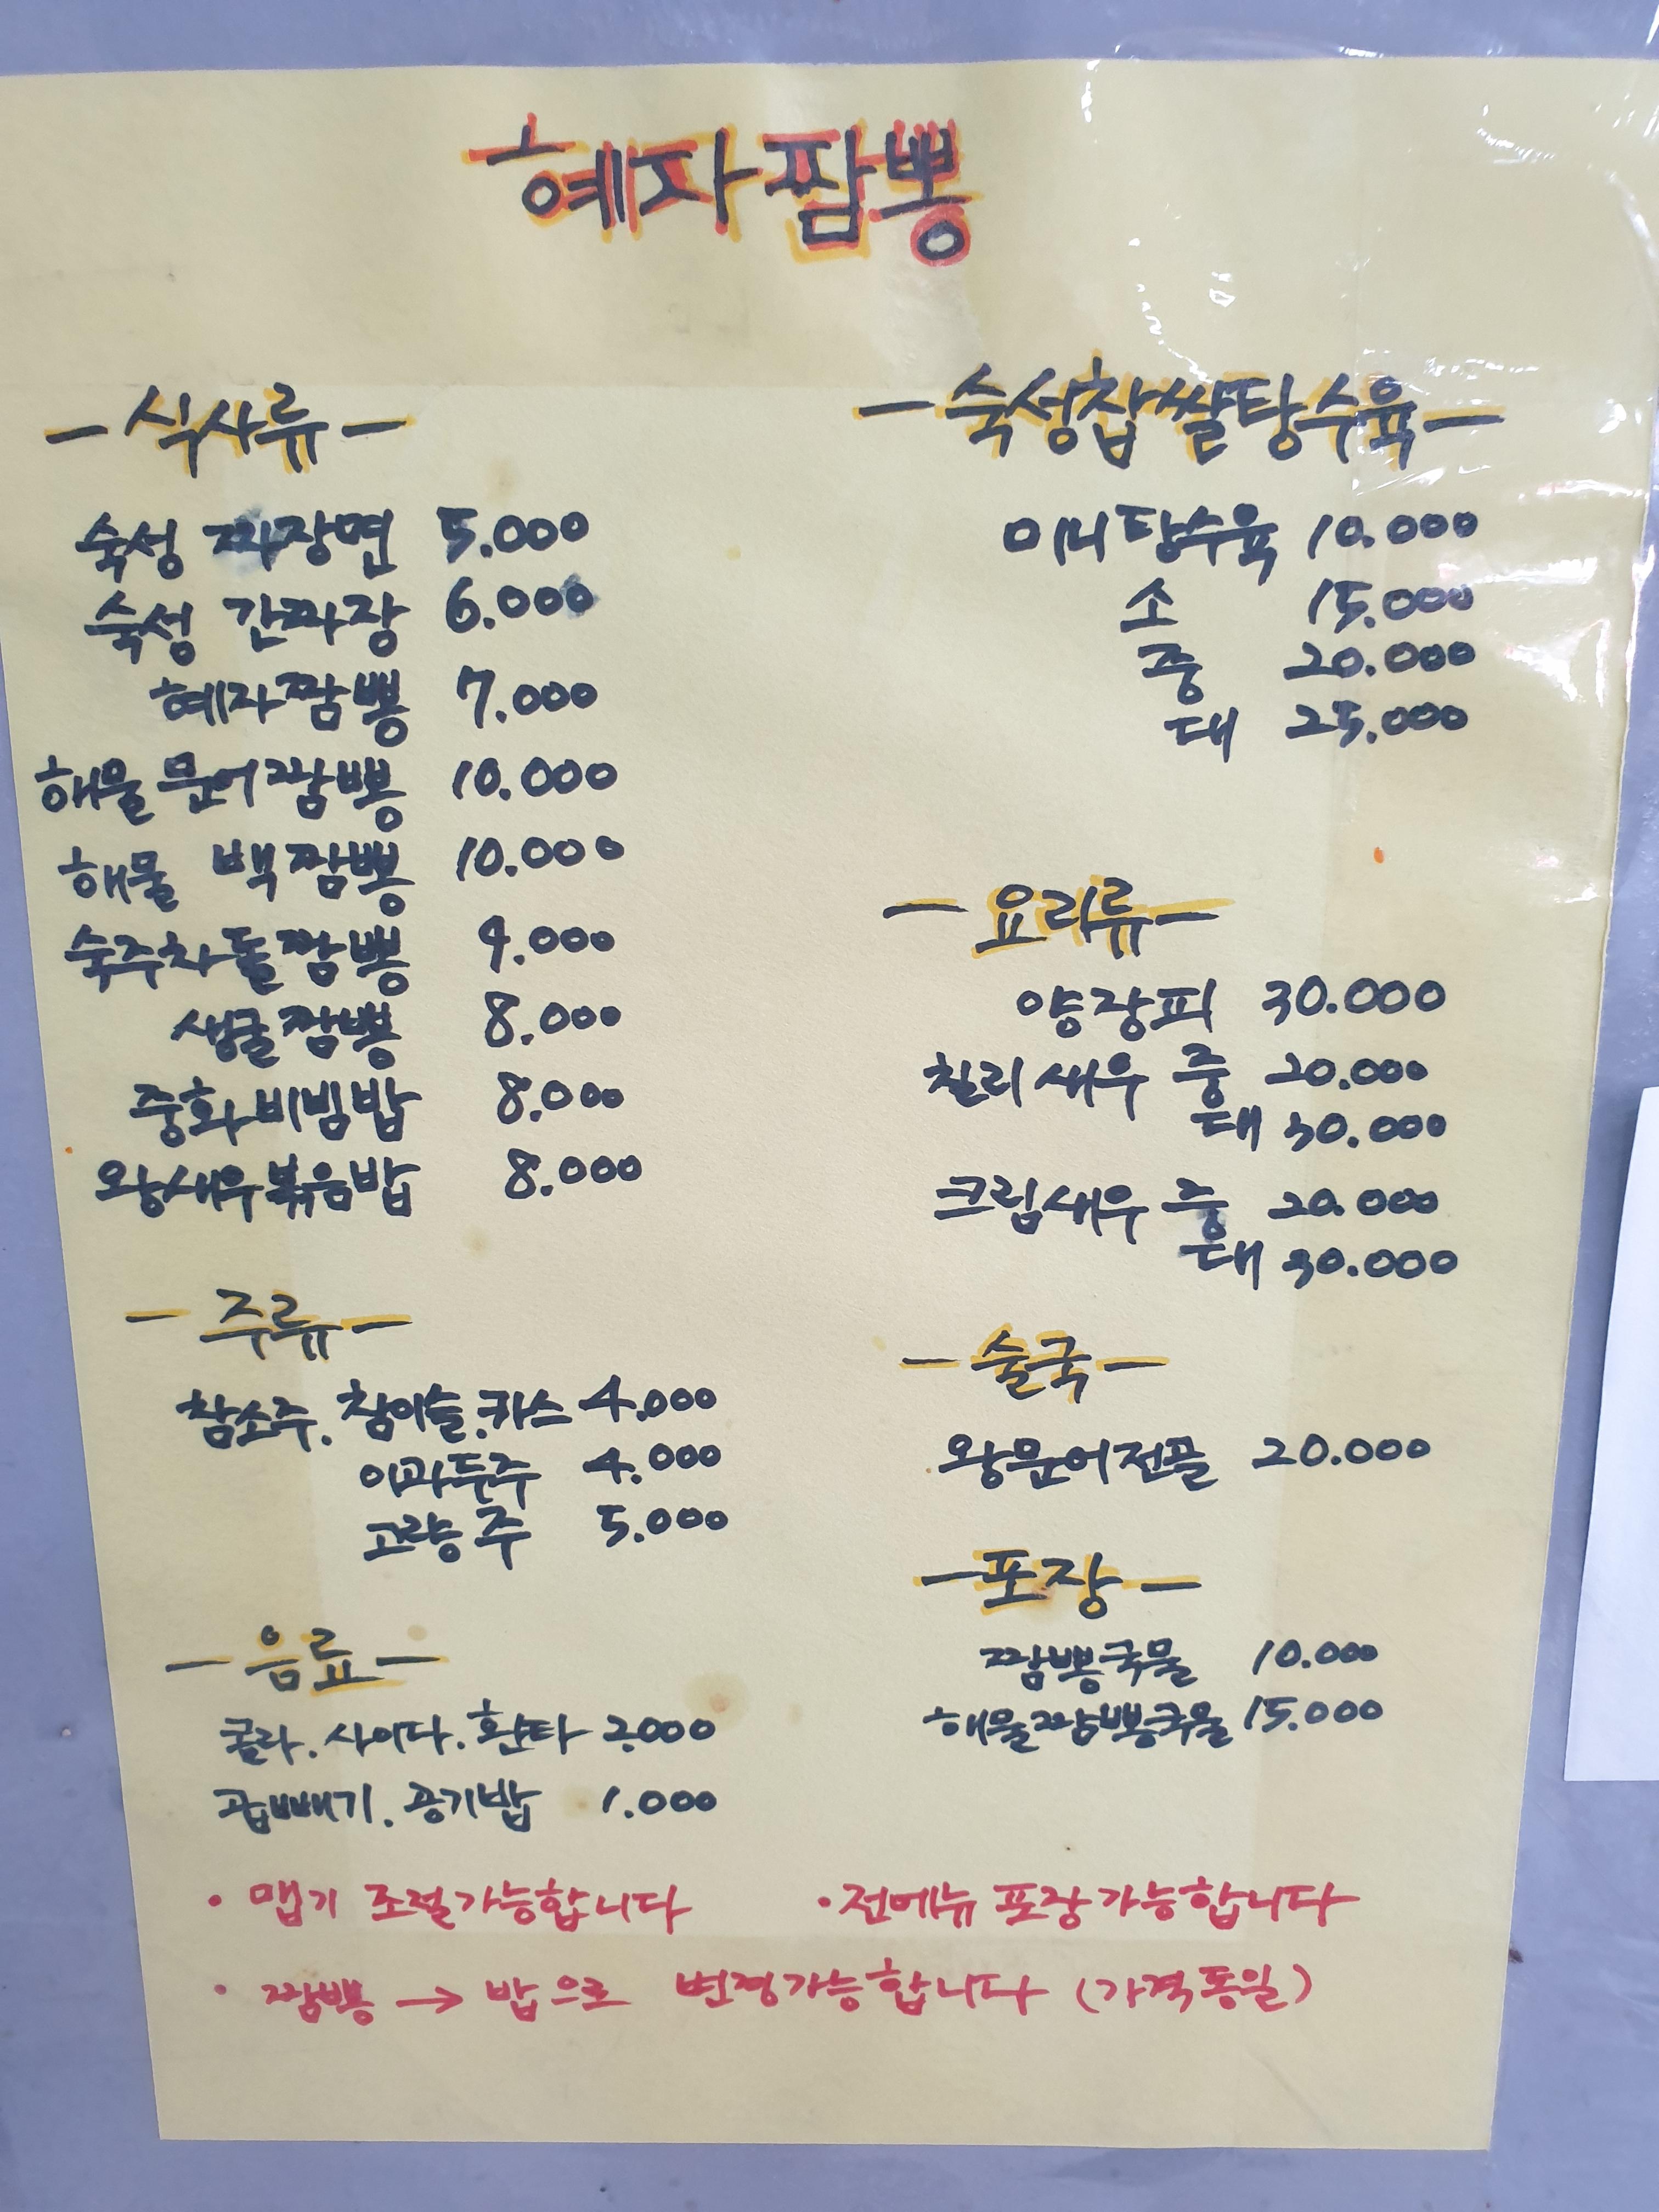 혜자짬뽕
- 식사류 -
숙성 짜장면 5.000
숙성 간짜장 6.000
혜자짬뽕 7.000
해물문어짬뽕 10.000
해물 백짬뽕 10.000
숙주차돌짬뽕 9.000
생굴짬뽕 8.000
중화비빔밥 8.000
왕새우볶음밥 8.000
- 주류 -
참소주. 참이슬.카스 4.000
이과두주 4.000
고량주 5.000
- 음료 -
콜라. 사이다. 환타 2.000
곱빼기. 공기밥 1.000
- 숙성찹쌀탕수육 -
미니탕수육 10.000
소 15.000
중 20.000
대 25.000
- 요리류 -
양장피 30.000
칠리새우 중 20.000
대 30.000
크림새우 중 20.000
대 30.000
- 술국 -
왕문어전골 20.000
- 포장 -
짬뽕국물 10.000
해물짬뽕국물 15.000
· 맵기 조절가능합니다
· 전메뉴 포장가능합니다
· 짬뽕 → 밥으로 변경가능합니다 (가격동일)